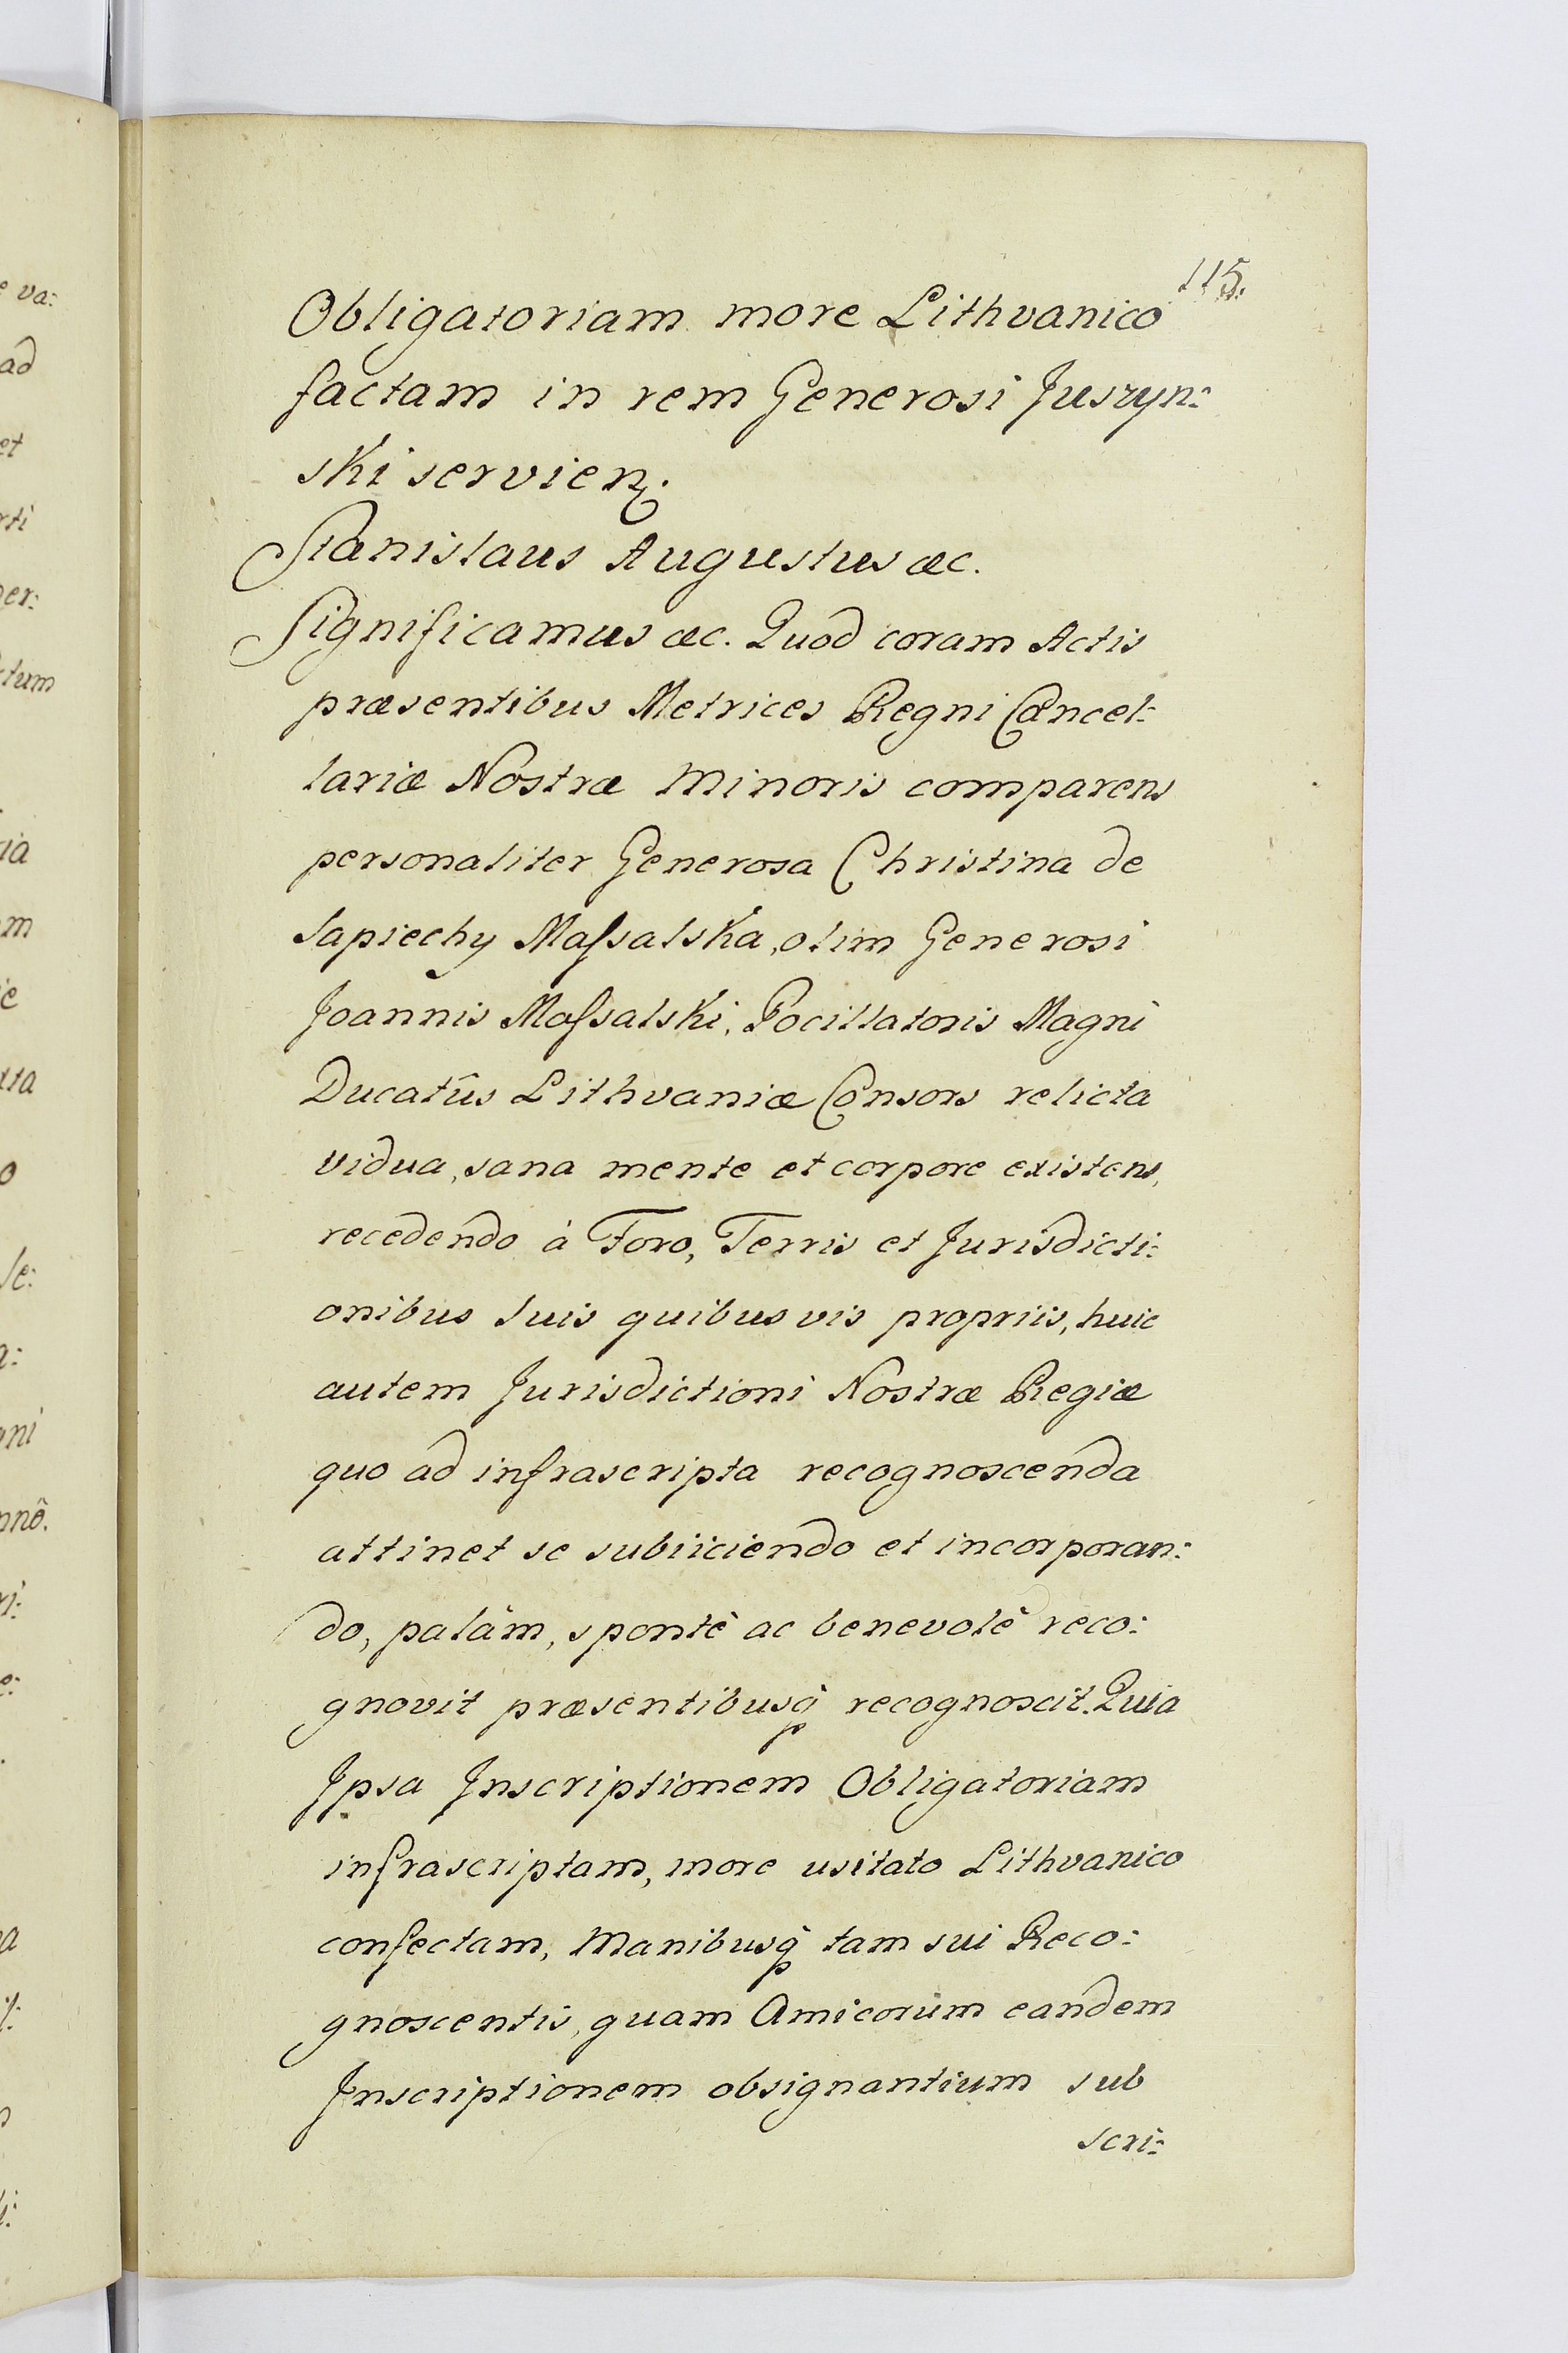 115.
Obligatoriam more Lithvanico
factam in rem Generosi Juszyn:
ski servien.
Stanislaus Augustus &c.
Significamus &c. Quod coram Actis
præsentibus Metrices Regni Cancel:
lariæ Nostræ Minoris comparens
personaliter Generosa Christina de
Sapiechy Maſsalska, olim Generosi
Joannis Maſsalski, Pocillatoris Magni
Ducatûs Lithvaniæ Consors relicta
vidua, sana mente et corpore existens,
recedendo à Foro, Terris et Jurisdicti:
onibus suis quibusvis propriis, huic
autem Jurisdictioni Nostræ Regiæ
quo ad infrascripta recognoscenda
attinet se subiiciendo et incorporan:
do, palàm, spontè ac benevolè reco:
gnovit præsentibusq̀ recognoscit. Quia
Ipsa Inscriptionem Obligatoriam
infrascriptam, more usitato Lithvanico
confectam, Manibusq̀ tam sui Reco:
gnoscentis, quam Amicorum eandem
Inscriptionem obsignantium sub
scri: